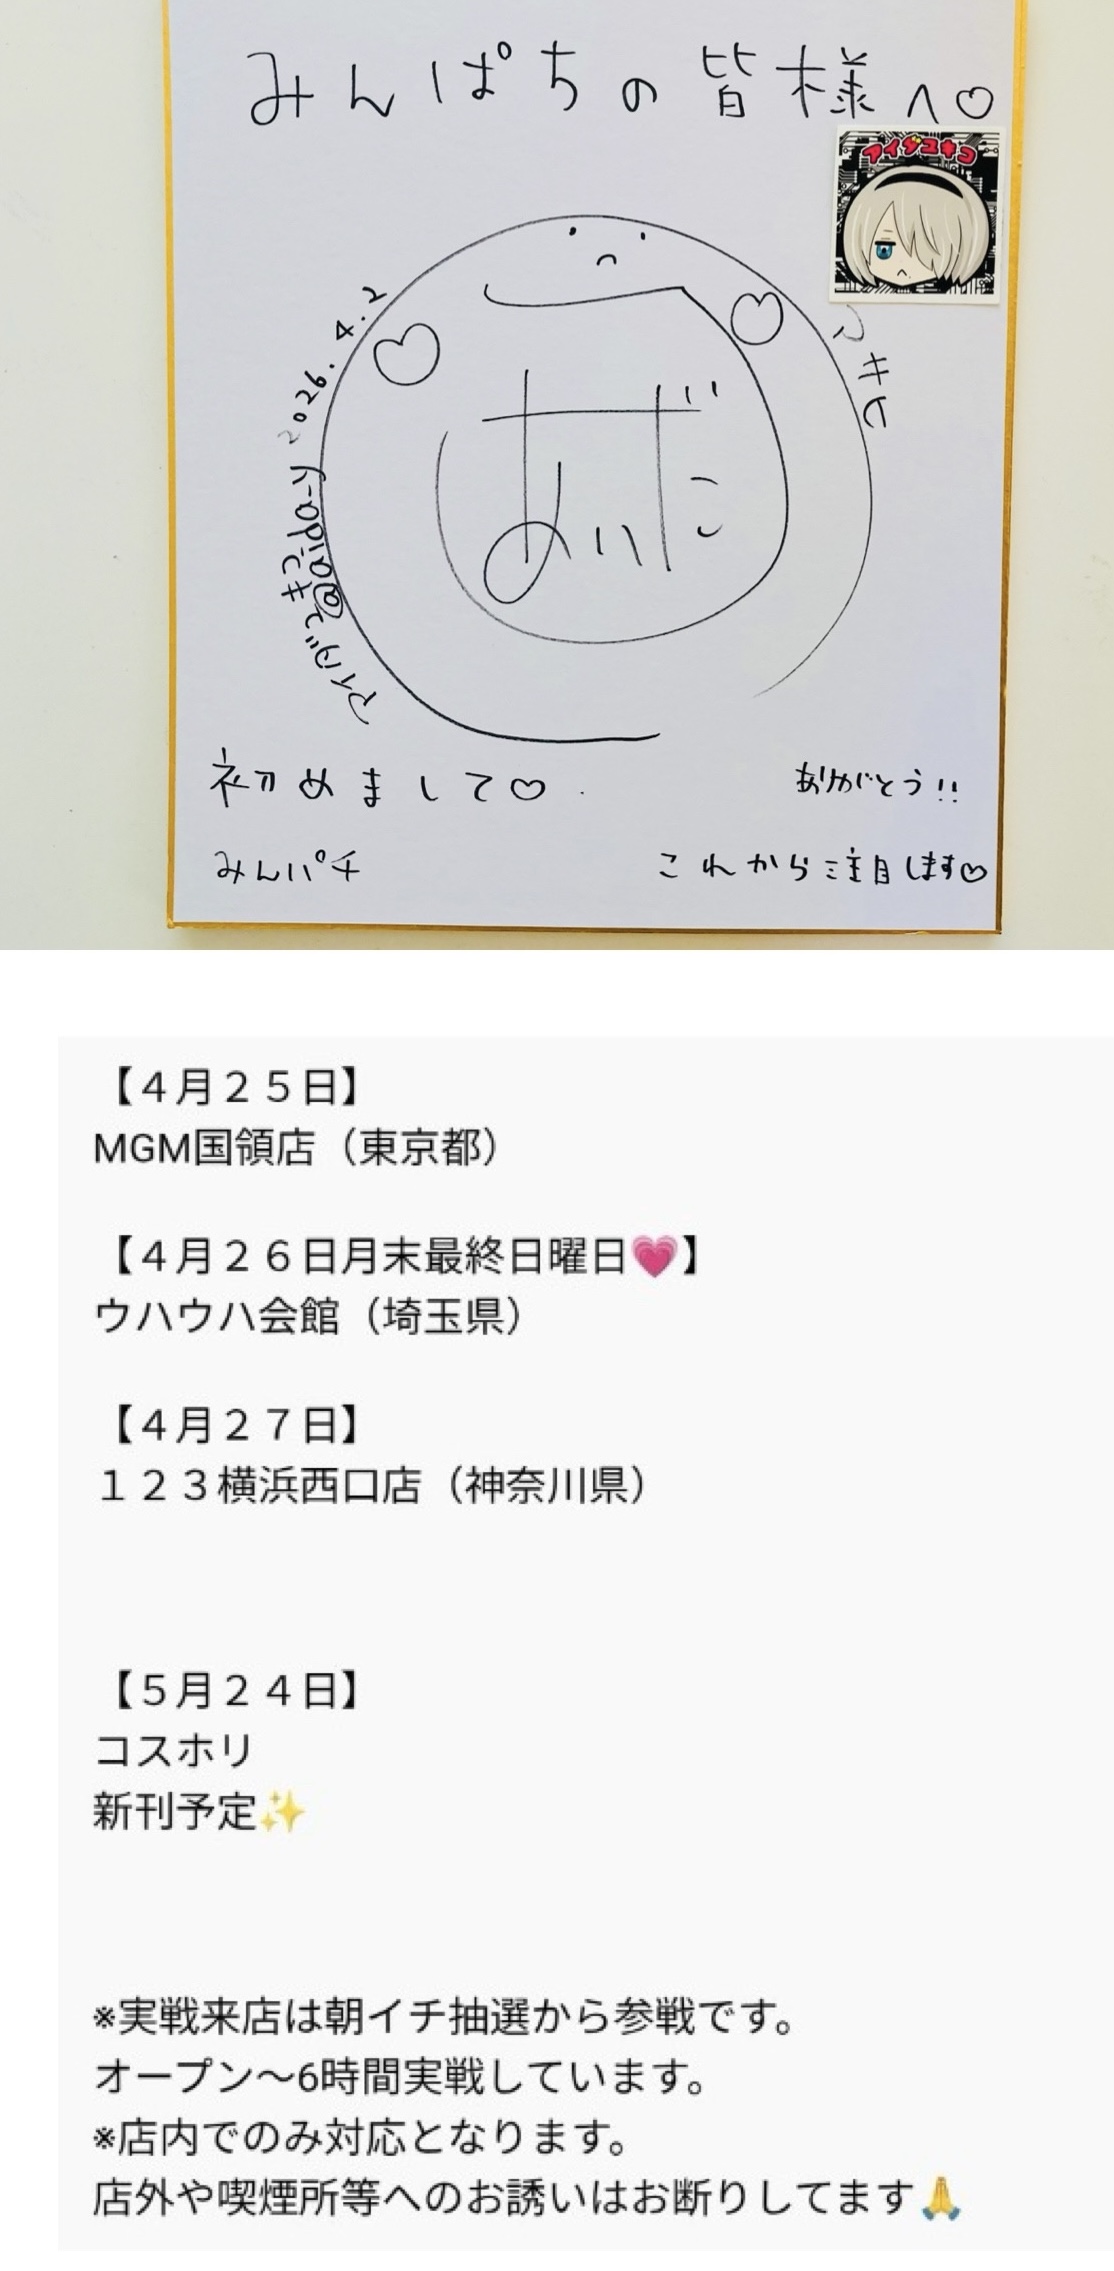 みんぱちの皆様へ♡
アイダユキコ
2026.4.2
@aida-y
あいだ
初めまして♡
ありがとう!!
みんパチ
これから注目します♡
【４月２５日】
MGM国領店（東京都）
【４月２６日月末最終日曜日💗】
ウハウハ会館（埼玉県）
【４月２７日】
１２３横浜西口店（神奈川県）
【５月２４日】
コスホリ
新刊予定✨
※実戦来店は朝イチ抽選から参戦です。
オープン〜6時間実戦しています。
※店内でのみ対応となります。
店外や喫煙所等へのお誘いはお断りしてます🙏